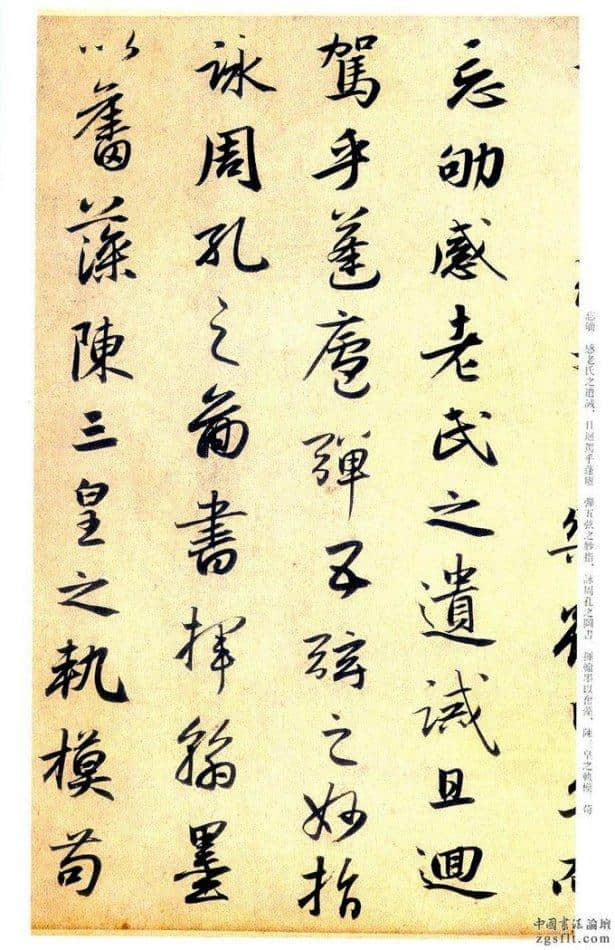 忘劬感老氏之遺誡且迴
駕乎蓬廬彈五弦之妙指
詠周孔之啚書揮翰墨
以奮藻陳三皇之軌模苟
忘劬 感老氏之遺誡,且迴駕乎蓬廬 彈五弦之妙指,詠周孔之圖書 揮翰墨以奮藻,陳三皇之軌模 苟
中國書法論壇
zgsflt.com